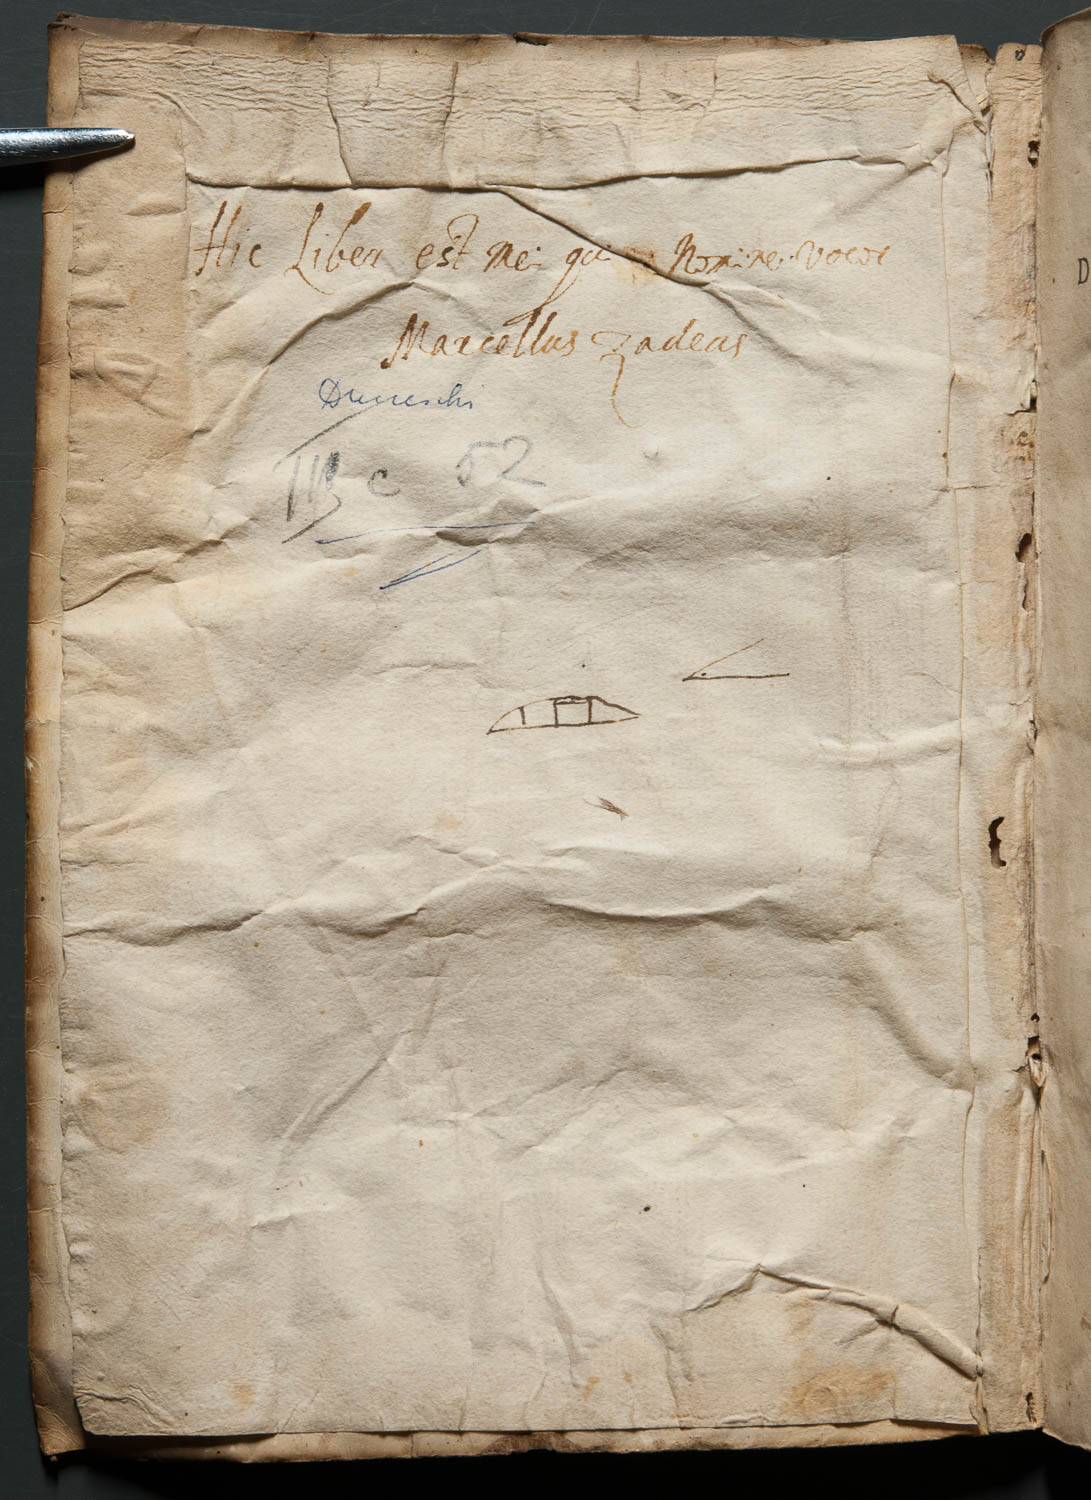 Hic Liber est mei qui nomine vocor
Marcellus Zadeas
III c 52
D